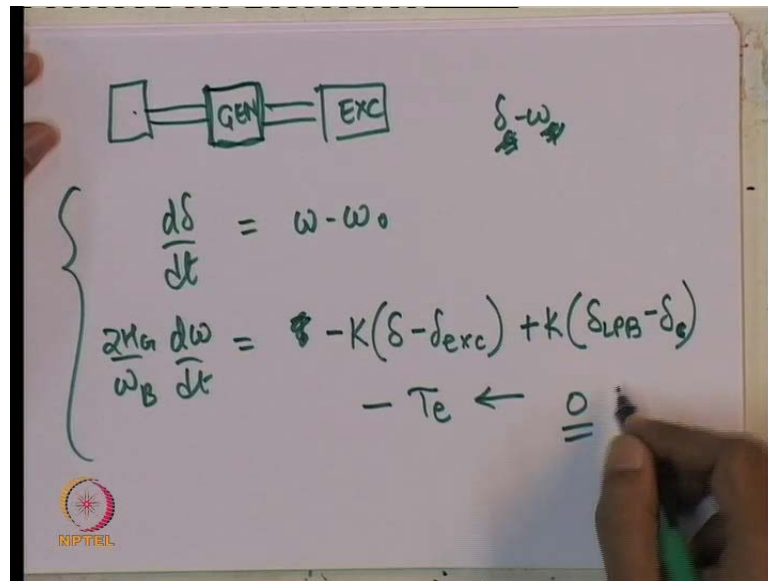 GEN EXC δ-ω
dδ/dt = ω - ω₀
2H_G/ω_B dω/dt = -K(δ-δ_exc) +K(δ_LPB-δ_G)
- Te ← 0
NPTEL